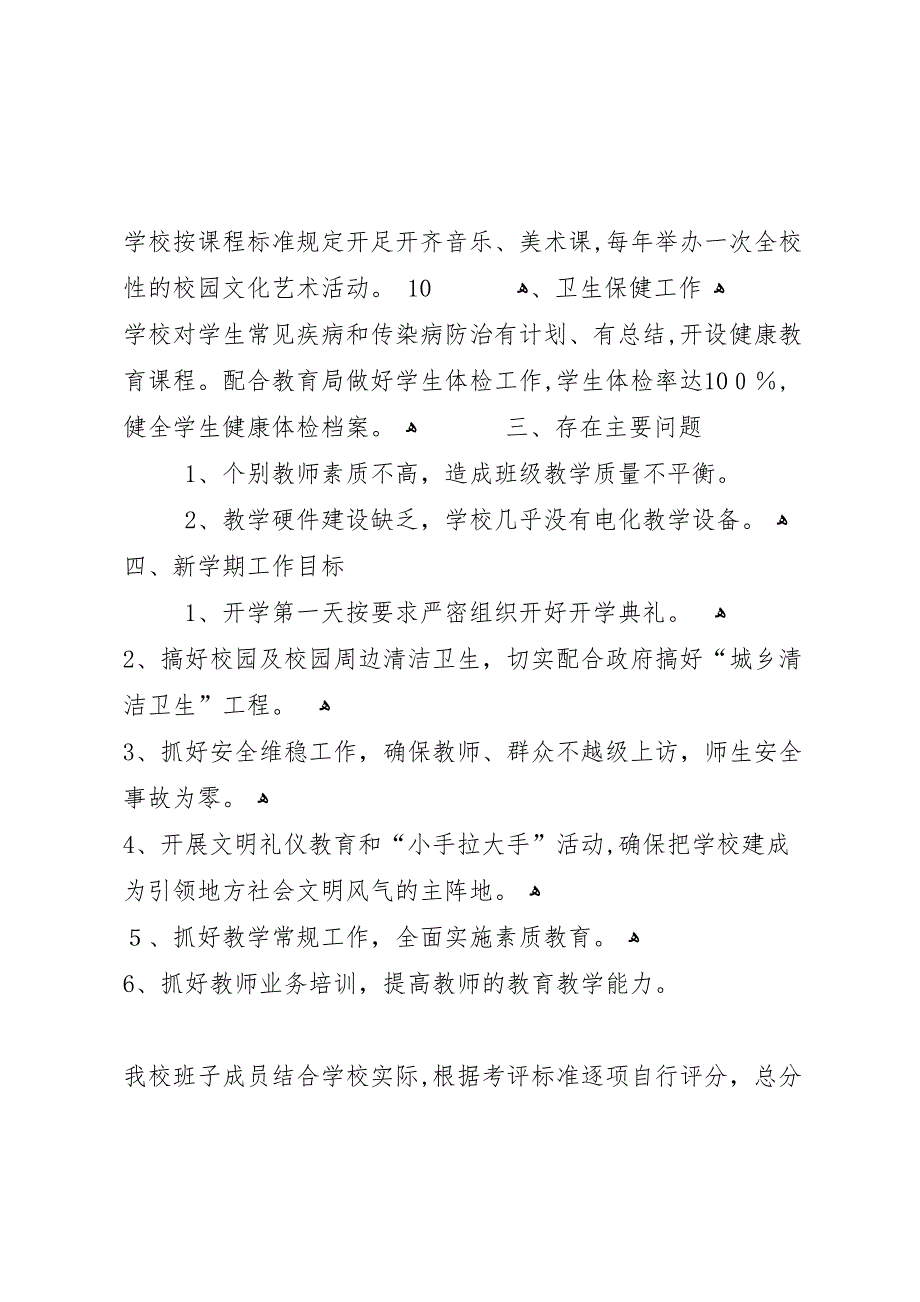 学校按课程标准规定开足开齐音乐、美术课,每年举办一次全校
性的校园文化艺术活动。 10 ﻫ、卫生保健工作 ﻫ
学校对学生常见疾病和传染病防治有计划、有总结,开设健康教
育课程。配合教育局做好学生体检工作,学生体检率达10０％,
健全学生健康体检档案。 ﻫ 三、存在主要问题
1、个别教师素质不高，造成班级教学质量不平衡。
2、教学硬件建设缺乏，学校几乎没有电化教学设备。 ﻫ
四、新学期工作目标
1、开学第一天按要求严密组织开好开学典礼。 ﻫ
2、搞好校园及校园周边清洁卫生，切实配合政府搞好“城乡清
洁卫生”工程。 ﻫ
3、抓好安全维稳工作，确保教师、群众不越级上访，师生安全
事故为零。 ﻫ
4、开展文明礼仪教育和“小手拉大手”活动,确保把学校建成
为引领地方社会文明风气的主阵地。 ﻫ
５、抓好教学常规工作，全面实施素质教育。 ﻫ
6、抓好教师业务培训，提高教师的教育教学能力。
我校班子成员结合学校实际,根据考评标准逐项自行评分，总分